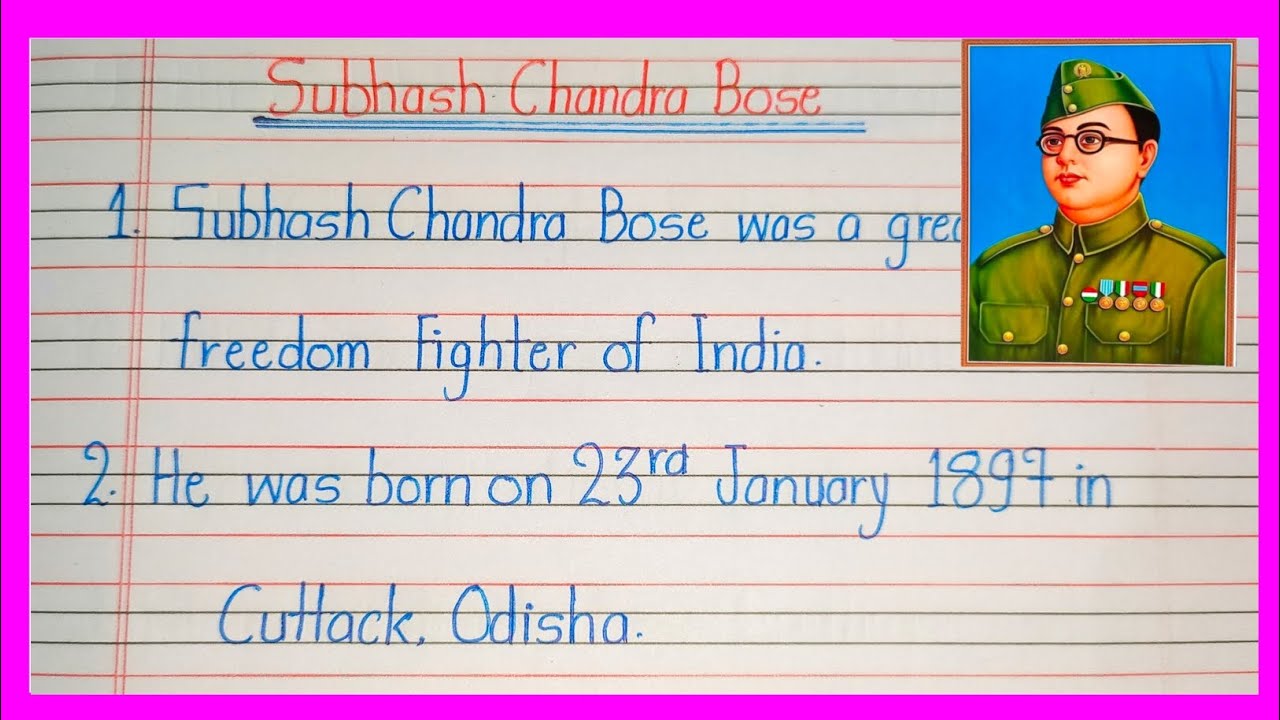 Subhash Chandra Bose
1. Subhash Chandra Bose was a
freedom Fighter of India.
2. He was born on 23rd January 1897 in
Cuttack, Odisha.